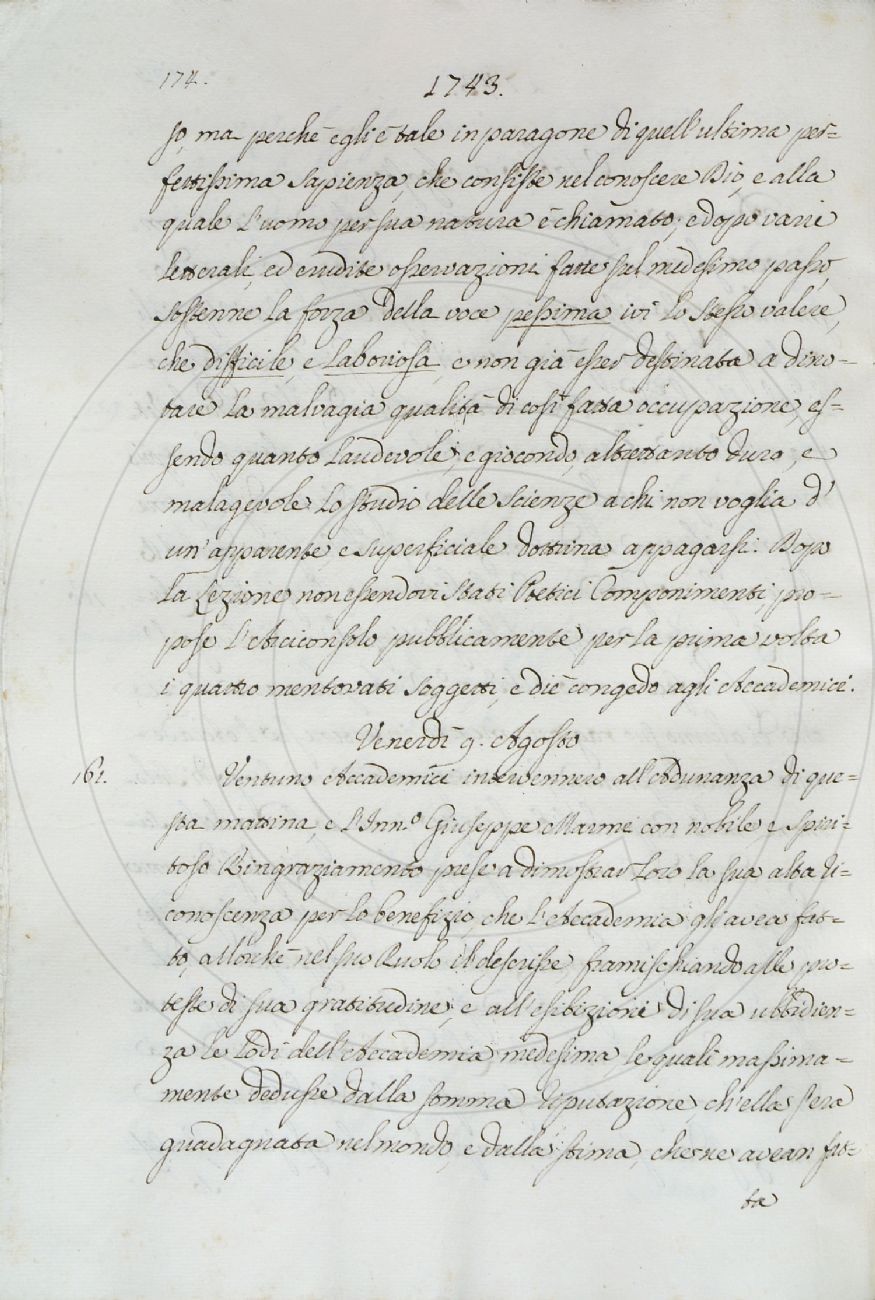 174.
1743.
so, ma perchè egli è tale in paragone di quell'ultima per=
fettissima sapienza, che consiste nel conoscere Dio, e alla
quale l'uomo per sua natura è chiamato; e dopo varie
letterali, ed erudite osservazioni fatte sul medesimo passo,
sostenne la forza della voce pessima ivi lo stesso valere,
che difficile, e laboriosa, e non già esser destinata a dino=
tare la malvagia qualità di così fatta occupazione, es=
sendo quanto laudevole, e giocondo, altrettanto duro, e
malagevole lo studio delle scienze a chi non voglia d'
un'apparente e superficiale dottrina appagarsi. Dopo
la Lezione non essendovi stati Poetici Componimenti, pro=
pose l'Arciconsolo pubblicamente per la prima volta
i quattro mentovati soggetti, e diè congedo agli Accademici.
Venerdì 9. Agosto
161. Ventuno Accademici intervennero all'Adunanza di que=
sta mattina, e l'Inn.o Giuseppe Marmi con nobile, e spiri=
toso Ringraziamento prese a dimostrar loro la sua alta ri=
conoscenza per lo benefizio, che l'Accademia gli avea fat=
to, allorchè nel suo Ruolo il descrisse, framischiando alle pro=
teste di sua gratitudine, e all'esibizioni di sua ubbidien=
za le lodi dell'Accademia medesima, le quali massima=
mente dedusse dalla somma riputazione, ch'ella s'era
guadagnata nel mondo, e dalla stima, che ne avean fat=
ta